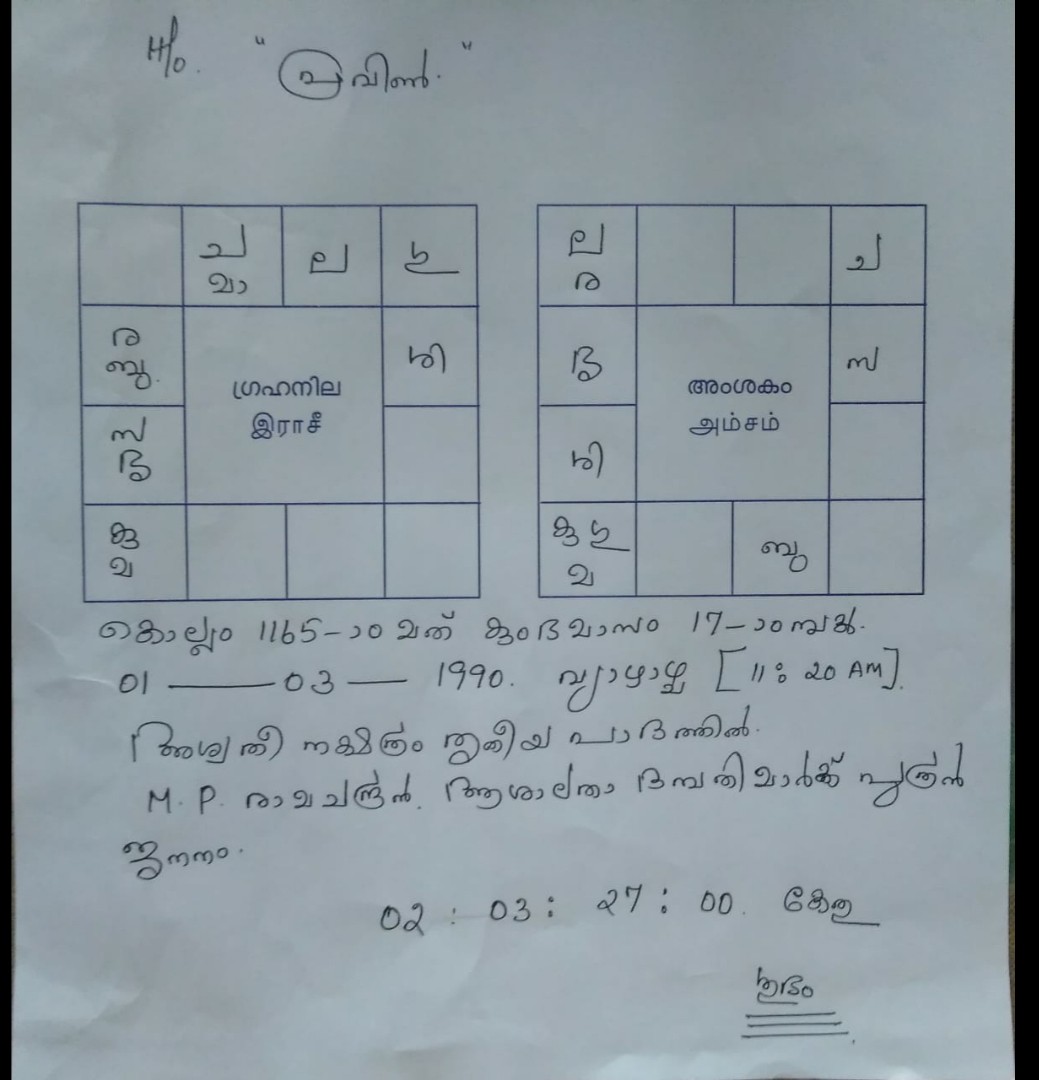 H/o. "പ്രവീൺ."
ച ല ഗു
മാ
ര ശി
ബു.
ഗ്രഹനില
இராசீ
സ
കു
മ
ല ച
ര
സ
അംശകം
அம்சம்
ശി
കു ഗു
മ
ബു
കൊല്ലം 1165-ാമത് കുംഭമാസം 17-ാം
01 —— 03 — 1990. വ്യാഴാഴ്ച [11:20 AM].
അശ്വതി നക്ഷത്രം തൃതീയ പാദത്തിൽ.
M. P. രാമചന്ദ്രൻ. ആശാലതാ ദമ്പതിമാർക്ക് പുത്രൻ
ജനനം.
02 : 03 : 27 : 00. കേതു
ശുഭം